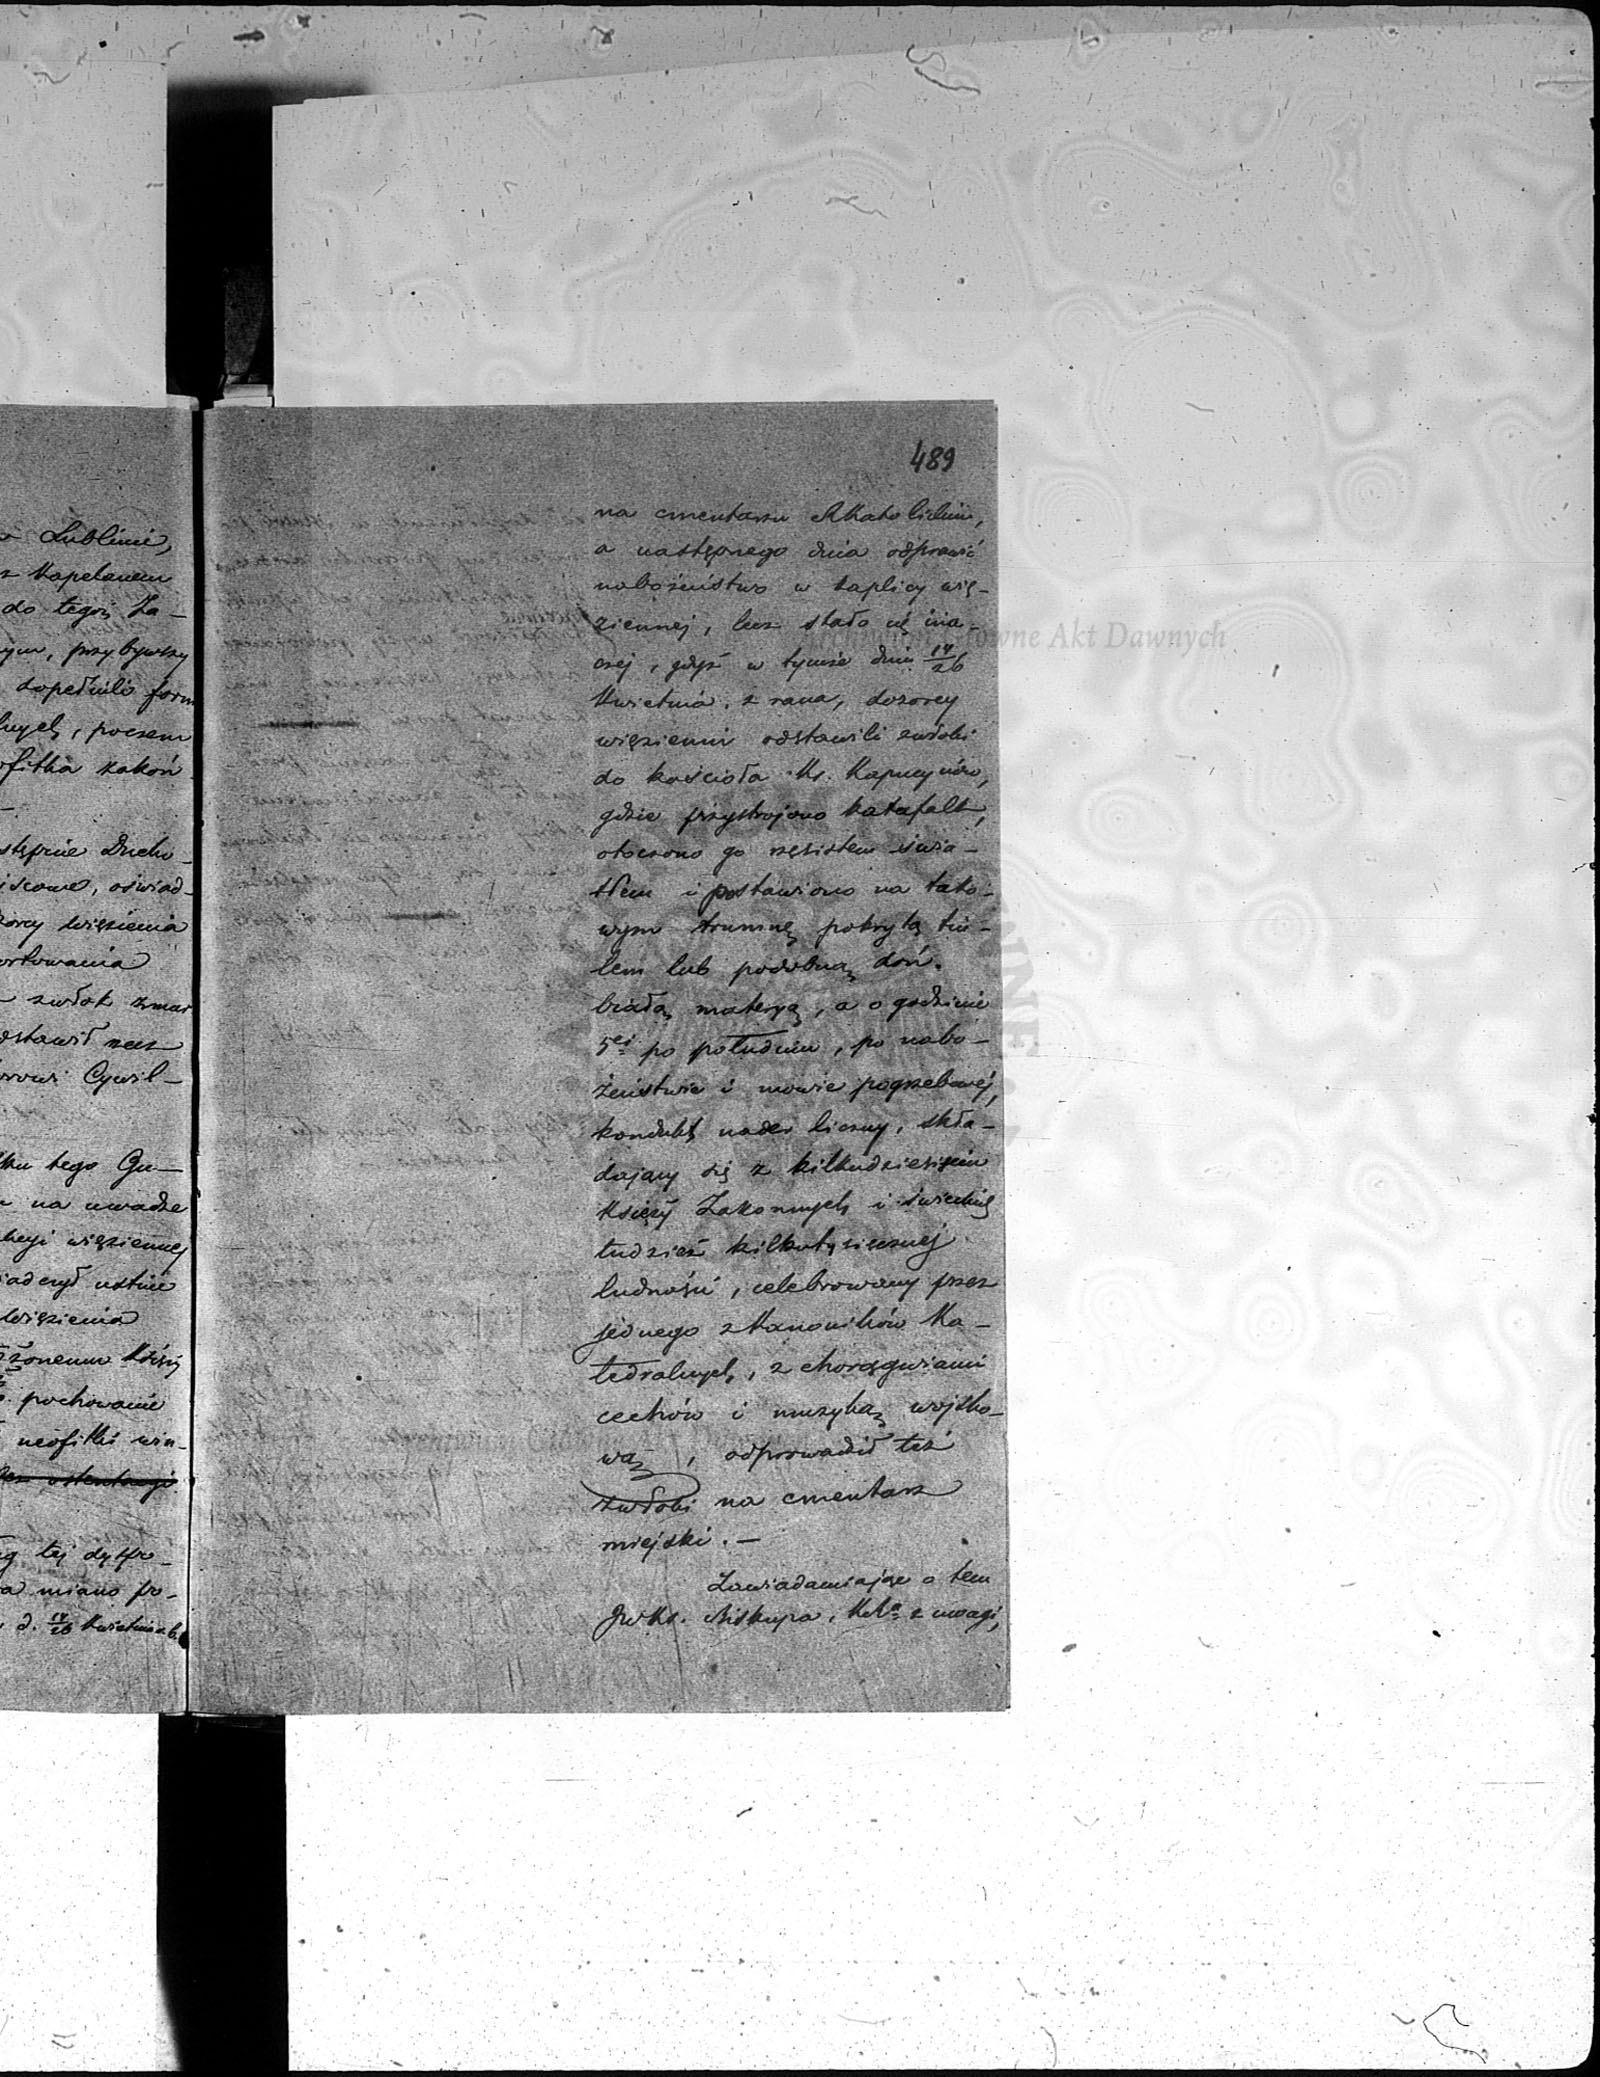 Lublinie,
z Kapelanem
do tegoż Za-
przybywszy
dopełnili form
poczem
zakoń-
stępnie Ducho-
oświad-
więzienia
zwłok zmar
Cywil-
tego Gu-
na uwadze
więziennej
ustnie
Więzienia
pochowanie
neofitki win-
tej dyspo-
miano po-
d. 14/26 Kwietnia b.
489
na cmentarzu RKatolickim,
a następnego dnia odprawić
nabożeństwo w kaplicy wię-
ziennej, lecz stało się ina-
czej, gdyż w tymże dniu 14/26
Kwietnia, z rana, dozorcy
więzienni odstawili zwłoki
do kościoła Ks. Kapucynów,
gdzie przystrojono katafalk,
otoczono go rzęsistem świa-
tłem i postawiono na tako-
wym trumnę pokrytą tiu-
lem lub podobną doń
białą materyą, a o godzinie
5ej po południu, po nabo-
żeństwie i mowie pogrzebowej,
kondukt nader liczny, skła-
dający się z kilkudziesięciu
Księży Zakonnych i świeckich
tudzież kilkotysięcznej
ludności, celebrowany przez
jednego z Kanoników Ka-
tedralnych, z chorągwiami
cechów i muzyką wojsko-
wą, odprowadził też
zwłoki na cmentarz
miejski. —
Zawiadamiając o tem
JWKs. Biskupa, z uwagi,
Archiwum Główne Akt Dawnych